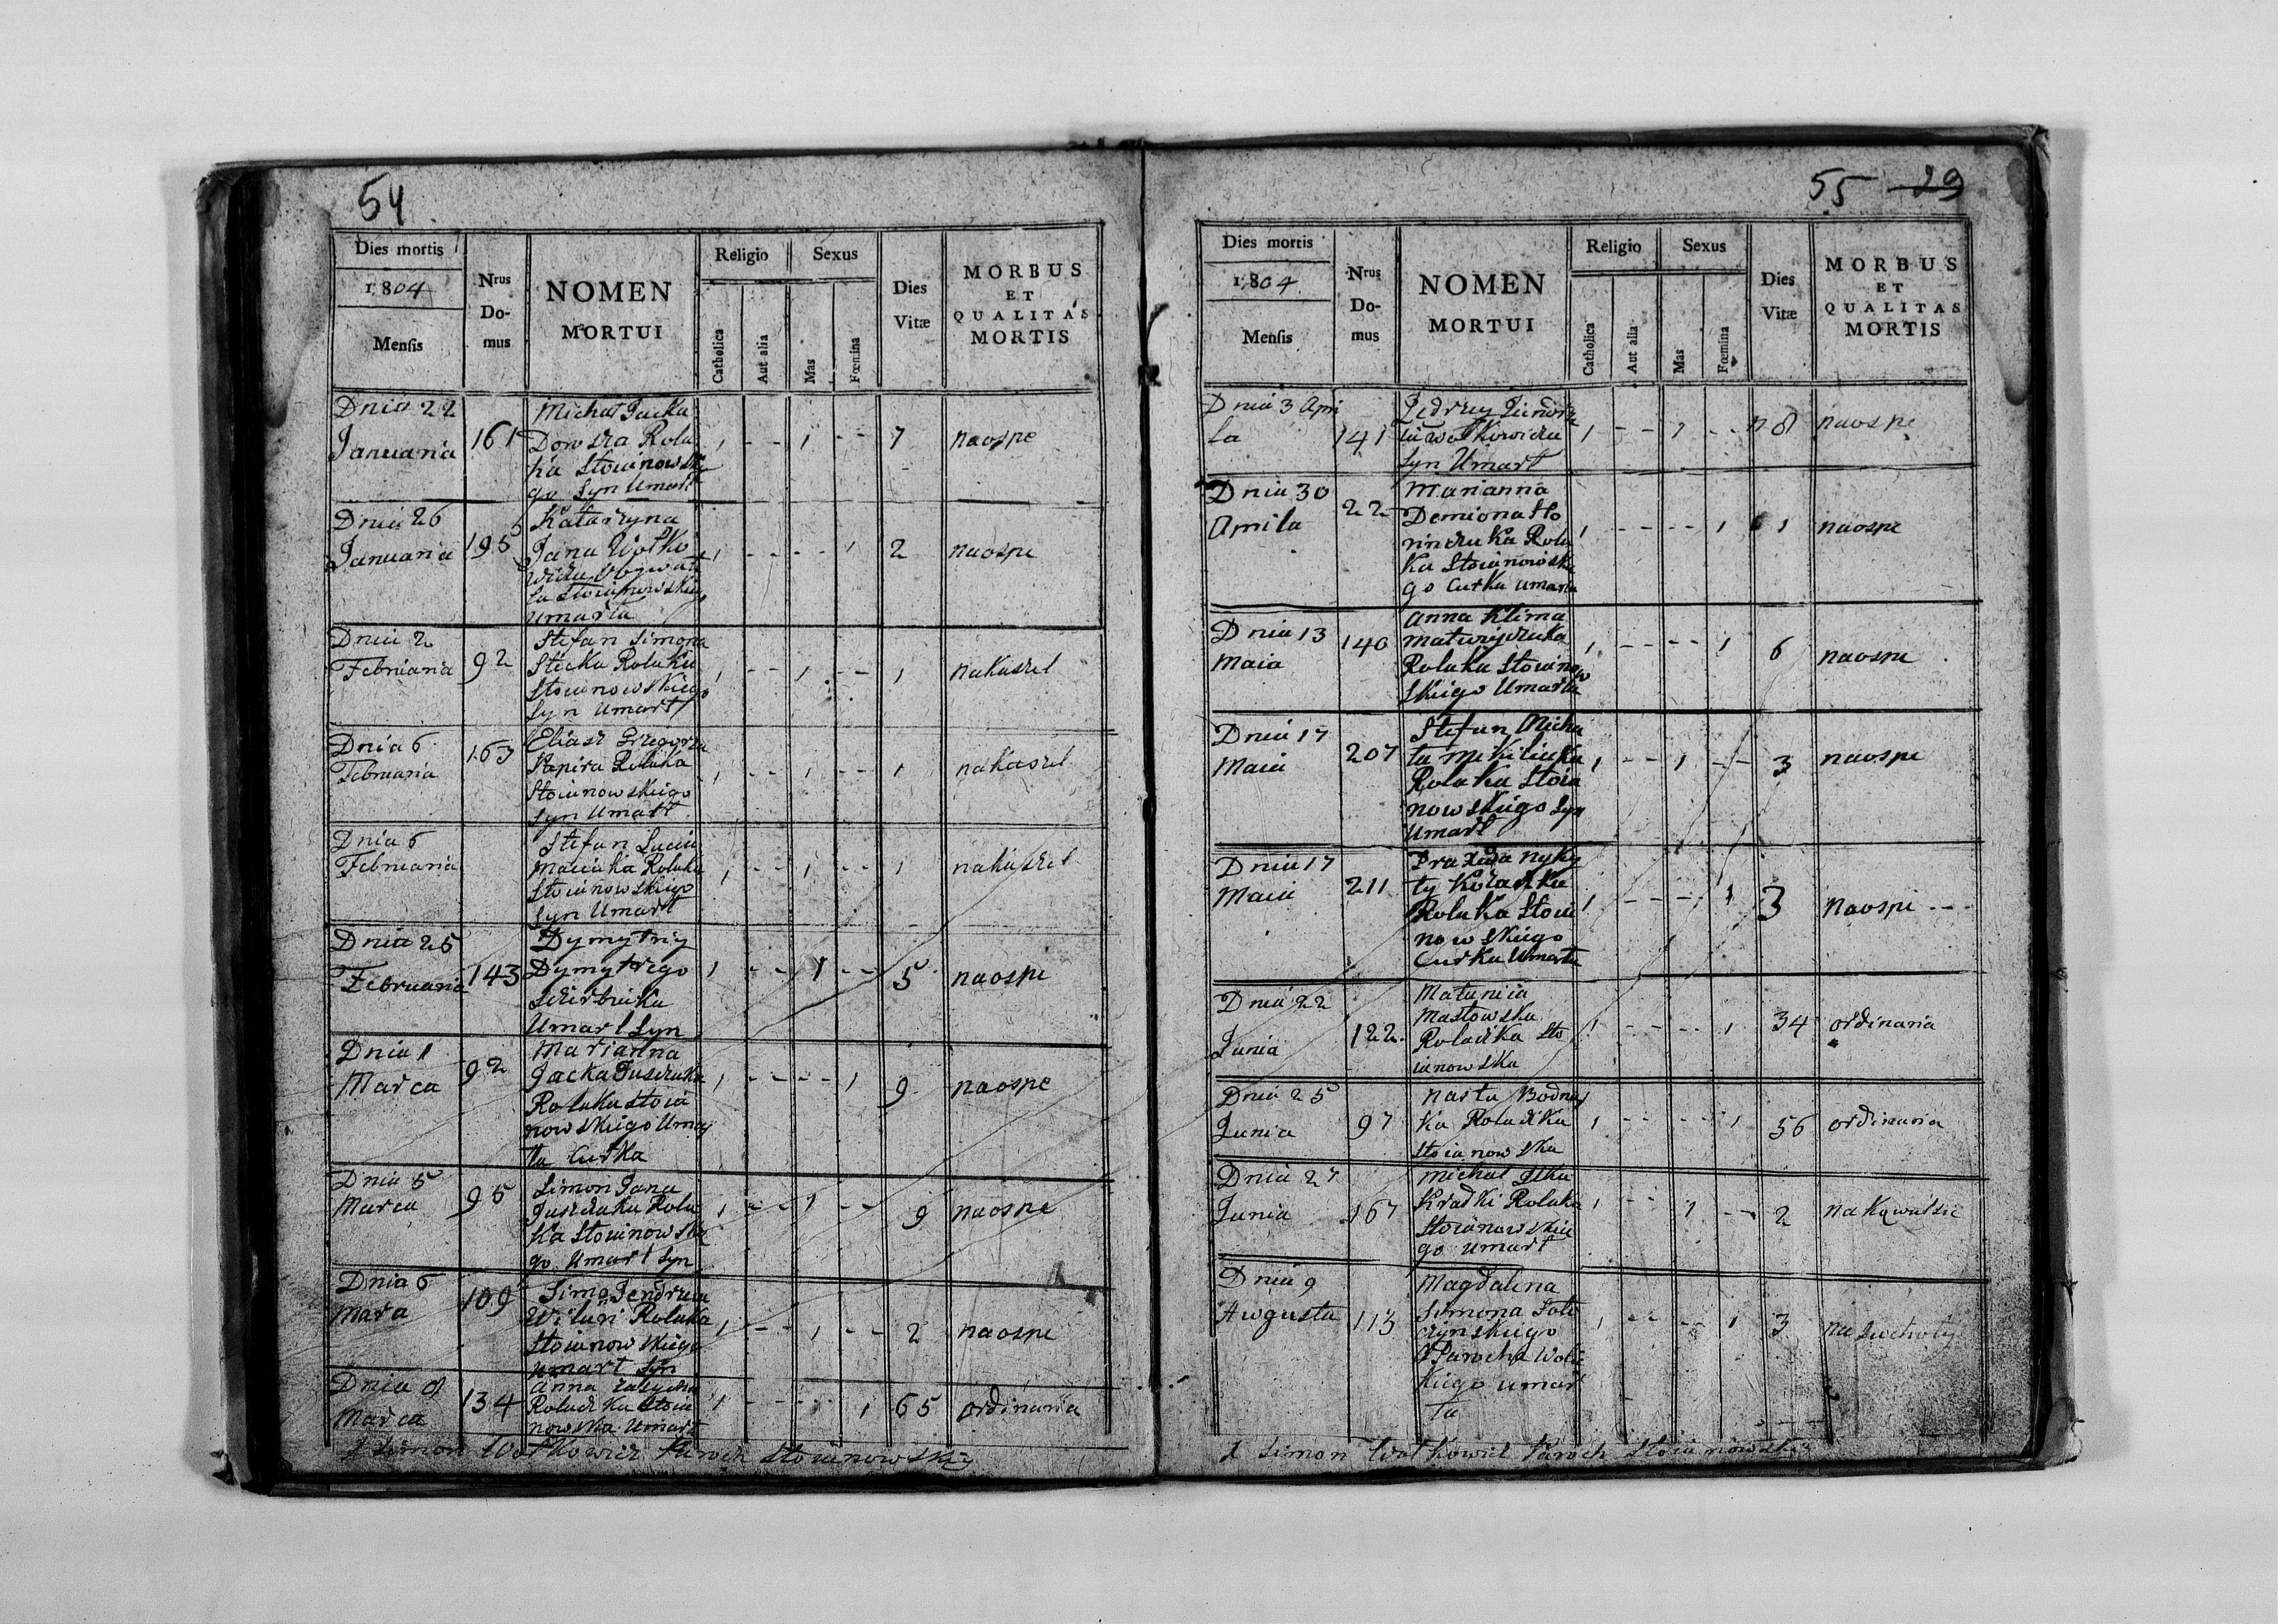 54
Dies mortis
1804
Mensis
Nrus Do-mus
NOMEN
MORTUI
Religio
Catholica
Aut alia
Sexus
Mas
Fœmina
Dies
Vitæ
MORBUS
ET
QUALITAS
MORTIS
Dnia 22
Januaria 161
Michał Jacka
Dowska Rola
ka Stoianowskie
go Syn Umarł
1 - - 1 - - 7 naospe
Dnia 26
Januaria 195
Katarzyna
Jana Wołko
wicza Obywate
la Stoianowskiego
umarła
1 - - - - 1 2 naospe
Dnia 2
Februaria 92
Stefan Simona
Stecka Rolaka
Stoianowskiego
Syn Umarł
1 - - 1 - - 1 nakaszel
Dnia 6
Februaria 163
Eliasz Grzegorza
Rolaka
Stoianowskiego
Syn Umarł
1 - - 1 - - 1 nakaszel
Dnia 6
Februaria
Stefan
Rolaka
Stoianowskiego
Syn Umarł
1 - - 1 - - 1 nakaszel
Dnia 25
Februaria 143
Dymytry
Dymytrego
Umarł Syn
1 - - 1 - - 5 naospe
Dnia 1
Marca 92
Marianna
Jacka
Rolaka Stoia
nowskiego Umar
ła Curka
1 - - - - 1 9 naospe
Dnia 5
Marca 95
Simon Jana
Rola
ka Stoianowskie
go Umarł Syn
1 - - 1 - - 9 naospe
Dnia 6
Marca 109
Simon Jendrzeia
Rolaka
Stoianowskiego
umarł Syn
1 - - 1 - - 2 naospe
Dnia 8
Marca 134
Anna
Roladka Stoia
nowska Umarła
1 - - - - 1 65 ordinaria
X Simon Wołkowicz Paroch Stoianowsky
55 29
Dies mortis
1804.
Mensis
Nrus Do-mus
NOMEN
MORTUI
Religio
Catholica
Aut alia
Sexus
Mas
Fœmina
Dies
Vitæ
MORBUS
ET
QUALITAS
MORTIS
Dnia 3 Apri
la 141
Jędrzey Jendrze
ia Wołkowicza
Syn Umarł
1 - - 1 - - 8 naospe
Dnia 30
Aprila 22
Marianna
Demiona
Rola
ka Stoianowskie
go Curka umarła
1 - - - - 1 1 naospe
Dnia 13
Maia 140
Anna Klima
Rolaka Stoianow
skiego Umarła
1 - - - - 1 6 naospe
Dnia 17
Maia 207
Stefan Micha
ła
Rolaka Stoia
nowskiego Syn
Umarł
1 - - 1 - - 3 naospe
Dnia 17
Maia 211
Nyky
ty
Rolaka Stoia
nowskiego
Curka Umarła
1 - - - - 1 3 Naospe - -
Dnia 22
Junia 122.
Masłowska
Roladka Sto
ianowska
1 - - - - 1 34 ordinaria
Dnia 25
Junia 97
Nasta Bodnar
ka Roladka
Stoianowska
1 - - - - 1 56 ordinaria
Dnia 27
Junia 167
Michał Ilka
Kradki Rolaka
Stoianowskie
go umarł
1 - - 1 - - 2
Dnia 9
Awgusta 113
Magdalena
Simona
Parocha
kiego umar
ła
1 - - - - 1 3 na Suchoty
X Simon Wołkowicz Paroch Stoianowsky